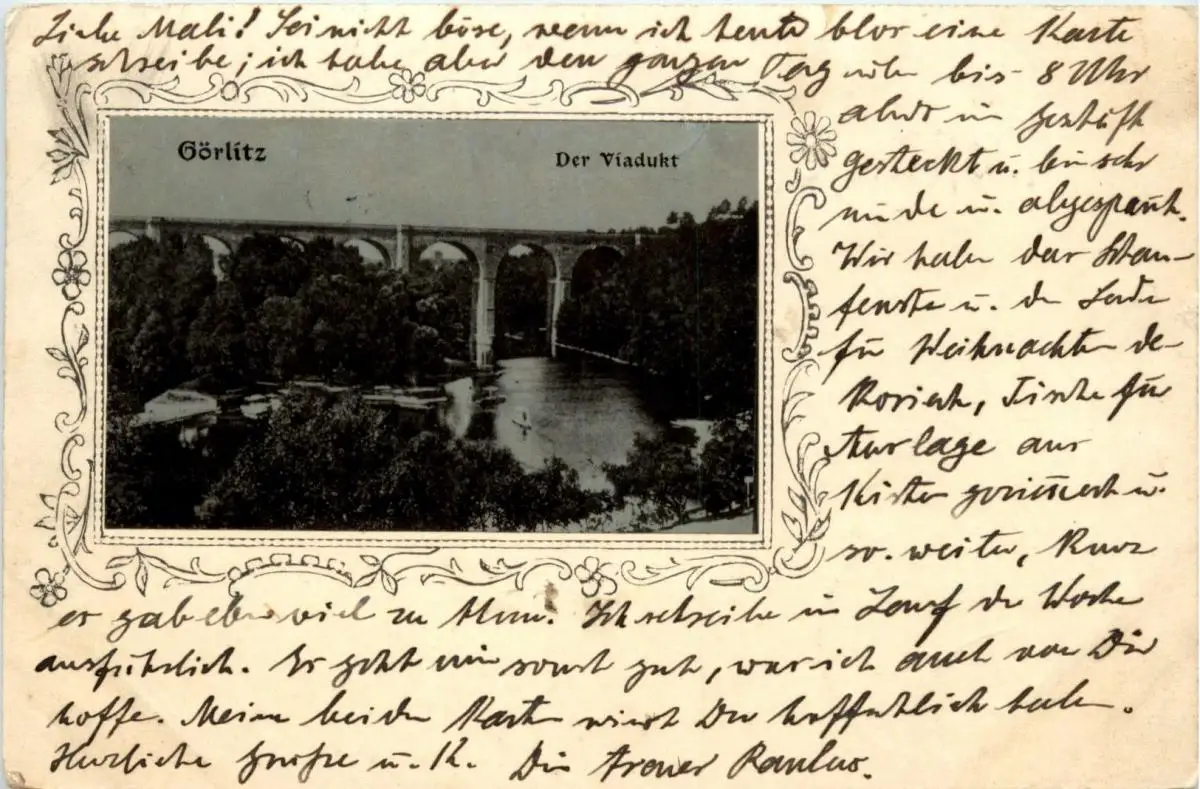 Liebe Mali! Sei nicht böse, wenn ich heute blos eine Karte
schreibe; ich habe aber den ganzen Tag bis 8 Uhr
abds im Geschäft
gesteckt u. bin sehr
müde u. abgespannt.
Wir haben das Schau-
fenster u. den Laden
für Weihnachten de-
koriert, Tische für
Auslage aus
Kisten gezimmert u.
so weiter, Kurz
es gab eben viel zu thun. Ich schreibe im Lauf der Woche
ausführlich. Es geht mir sonst gut, was ich auch von Dir
hoffe. Meine beiden Karten wirst Du hoffentlich haben.
Herzliche Grüße u. K. Dein treuer Paulus.
Görlitz
Der Viadukt